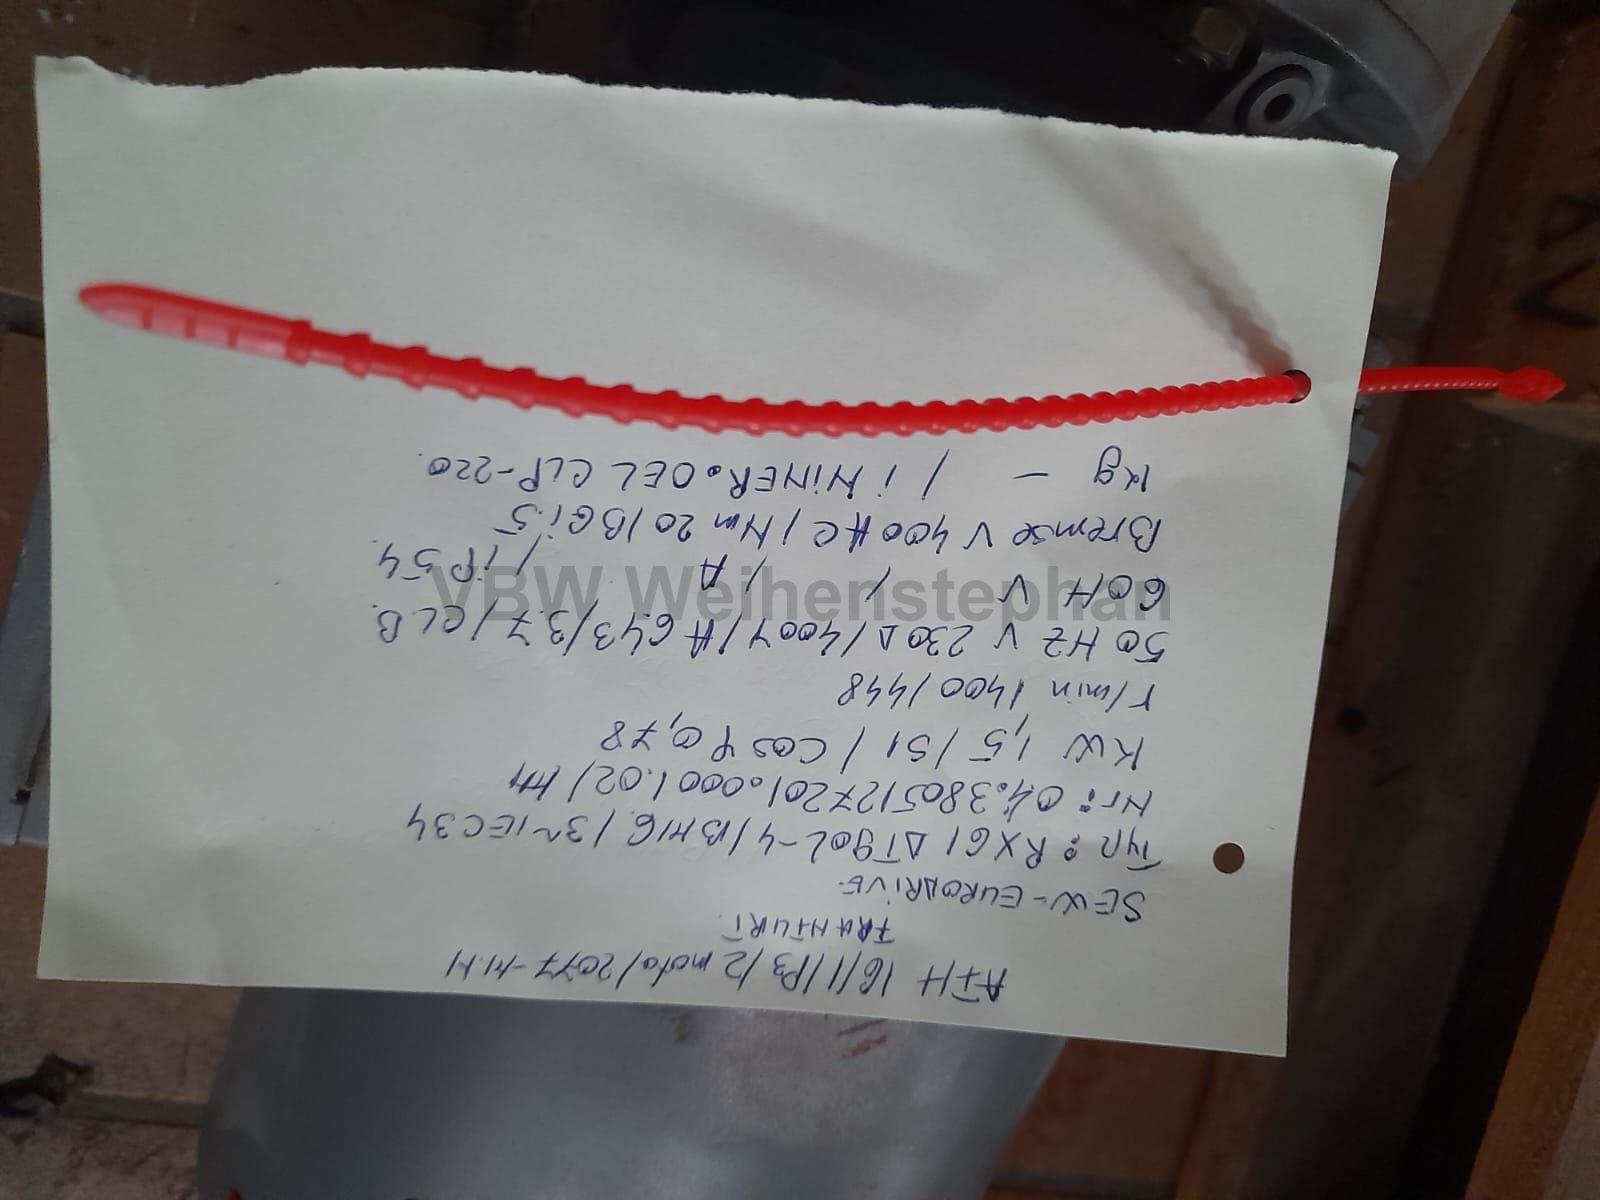 ATH 16/11/P3/2 moto/2077-M.N
FRANFURT.
SEW-EURODRIVE.
Typ: RX61 DT90L-4/BMG/3~IEC34
Nr: 04.3805127201.0001.02/
KW 1,5/S1/Cosφ 0,78
r/min 1400/448
50 HZ V 230Δ/400Y/A 6.43/3.7/CL.B.
60H V / /A / /iP54.
Bremse V 400AC/Nm 20/BGi.5
Kg - / i MiNER.OEL CLP-220.
VBW Weihenstephan